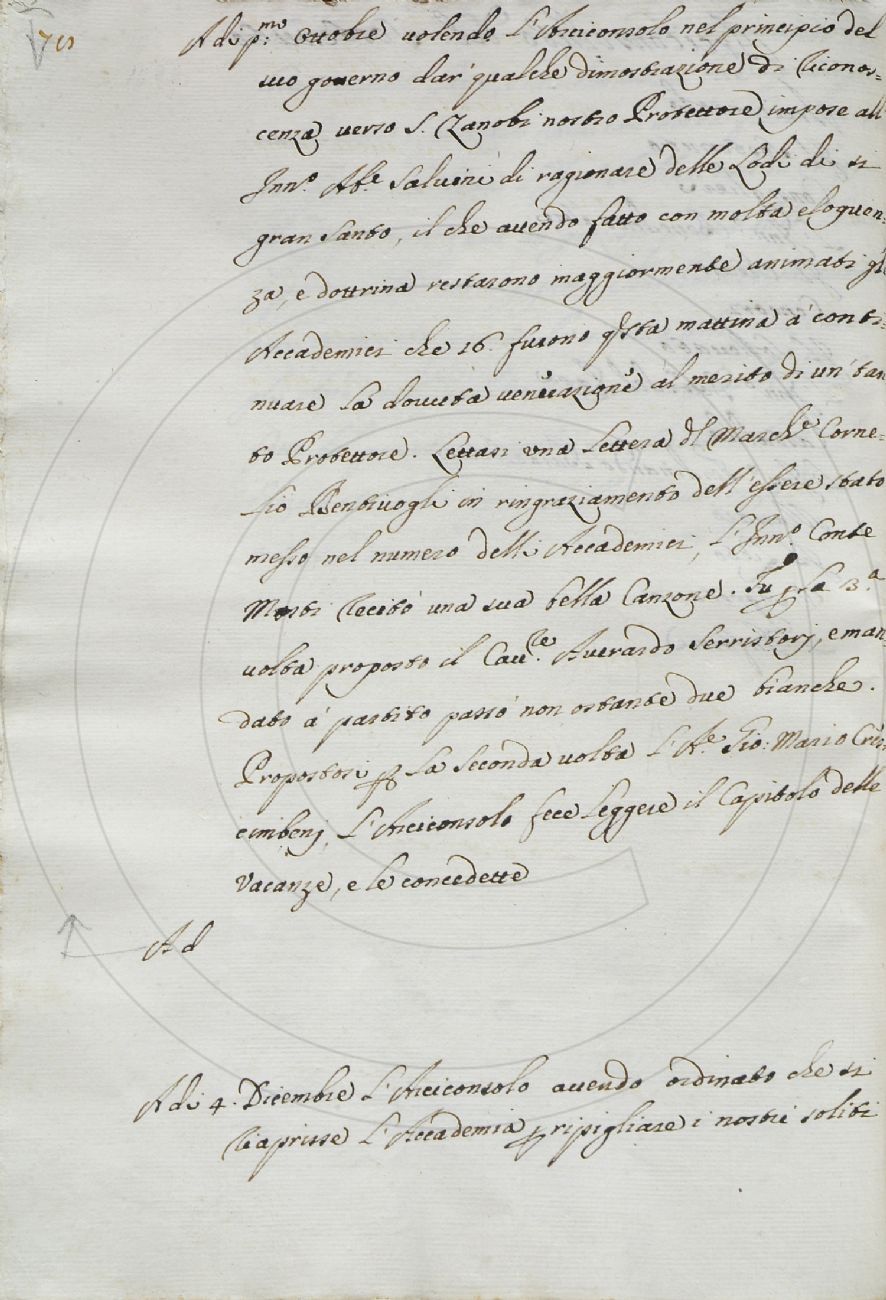 Adi p:mo Ottobre volendo l'Arciconsolo nel principio del
suo governo dar' qualche dimostrazione di riconos=
cenza verso S. Zanobi nostro Protettore impose all
Inn.o Ab.e Salvini di ragionare delle Lodi di si
gran Santo, il che avendo fatto con molta eloquen=
za, e dottrina restarono maggiormente animati gl'
Accademici che 16. furono q.sta mattina a conti=
nuare la dovuta venerazione al merito di un' tan
to Protettore. Lettasi una lettera d'l March.e Corne=
lio Bentivogli in ringraziamento dell'essere stato
messo nel numero delli Accademici, l'Inn.o Conte
Mosti recitò una sua bella Canzone. Fu p la 3.a
volta proposto il Cav.re Averardo Serristorj, e man
dato à partito passò non ostante due bianche.
Propostosi p la seconda volta l'A.e Gio: Mario Cres
cimbenj, l'Arciconsolo fece leggere il Capitolo delle
Vacanze, e le concedette
Ad
Adi 4. Dicembre l'Arciconsolo avendo ordinato che si
riaprisse l'Accademia p ripigliare i nostri soliti